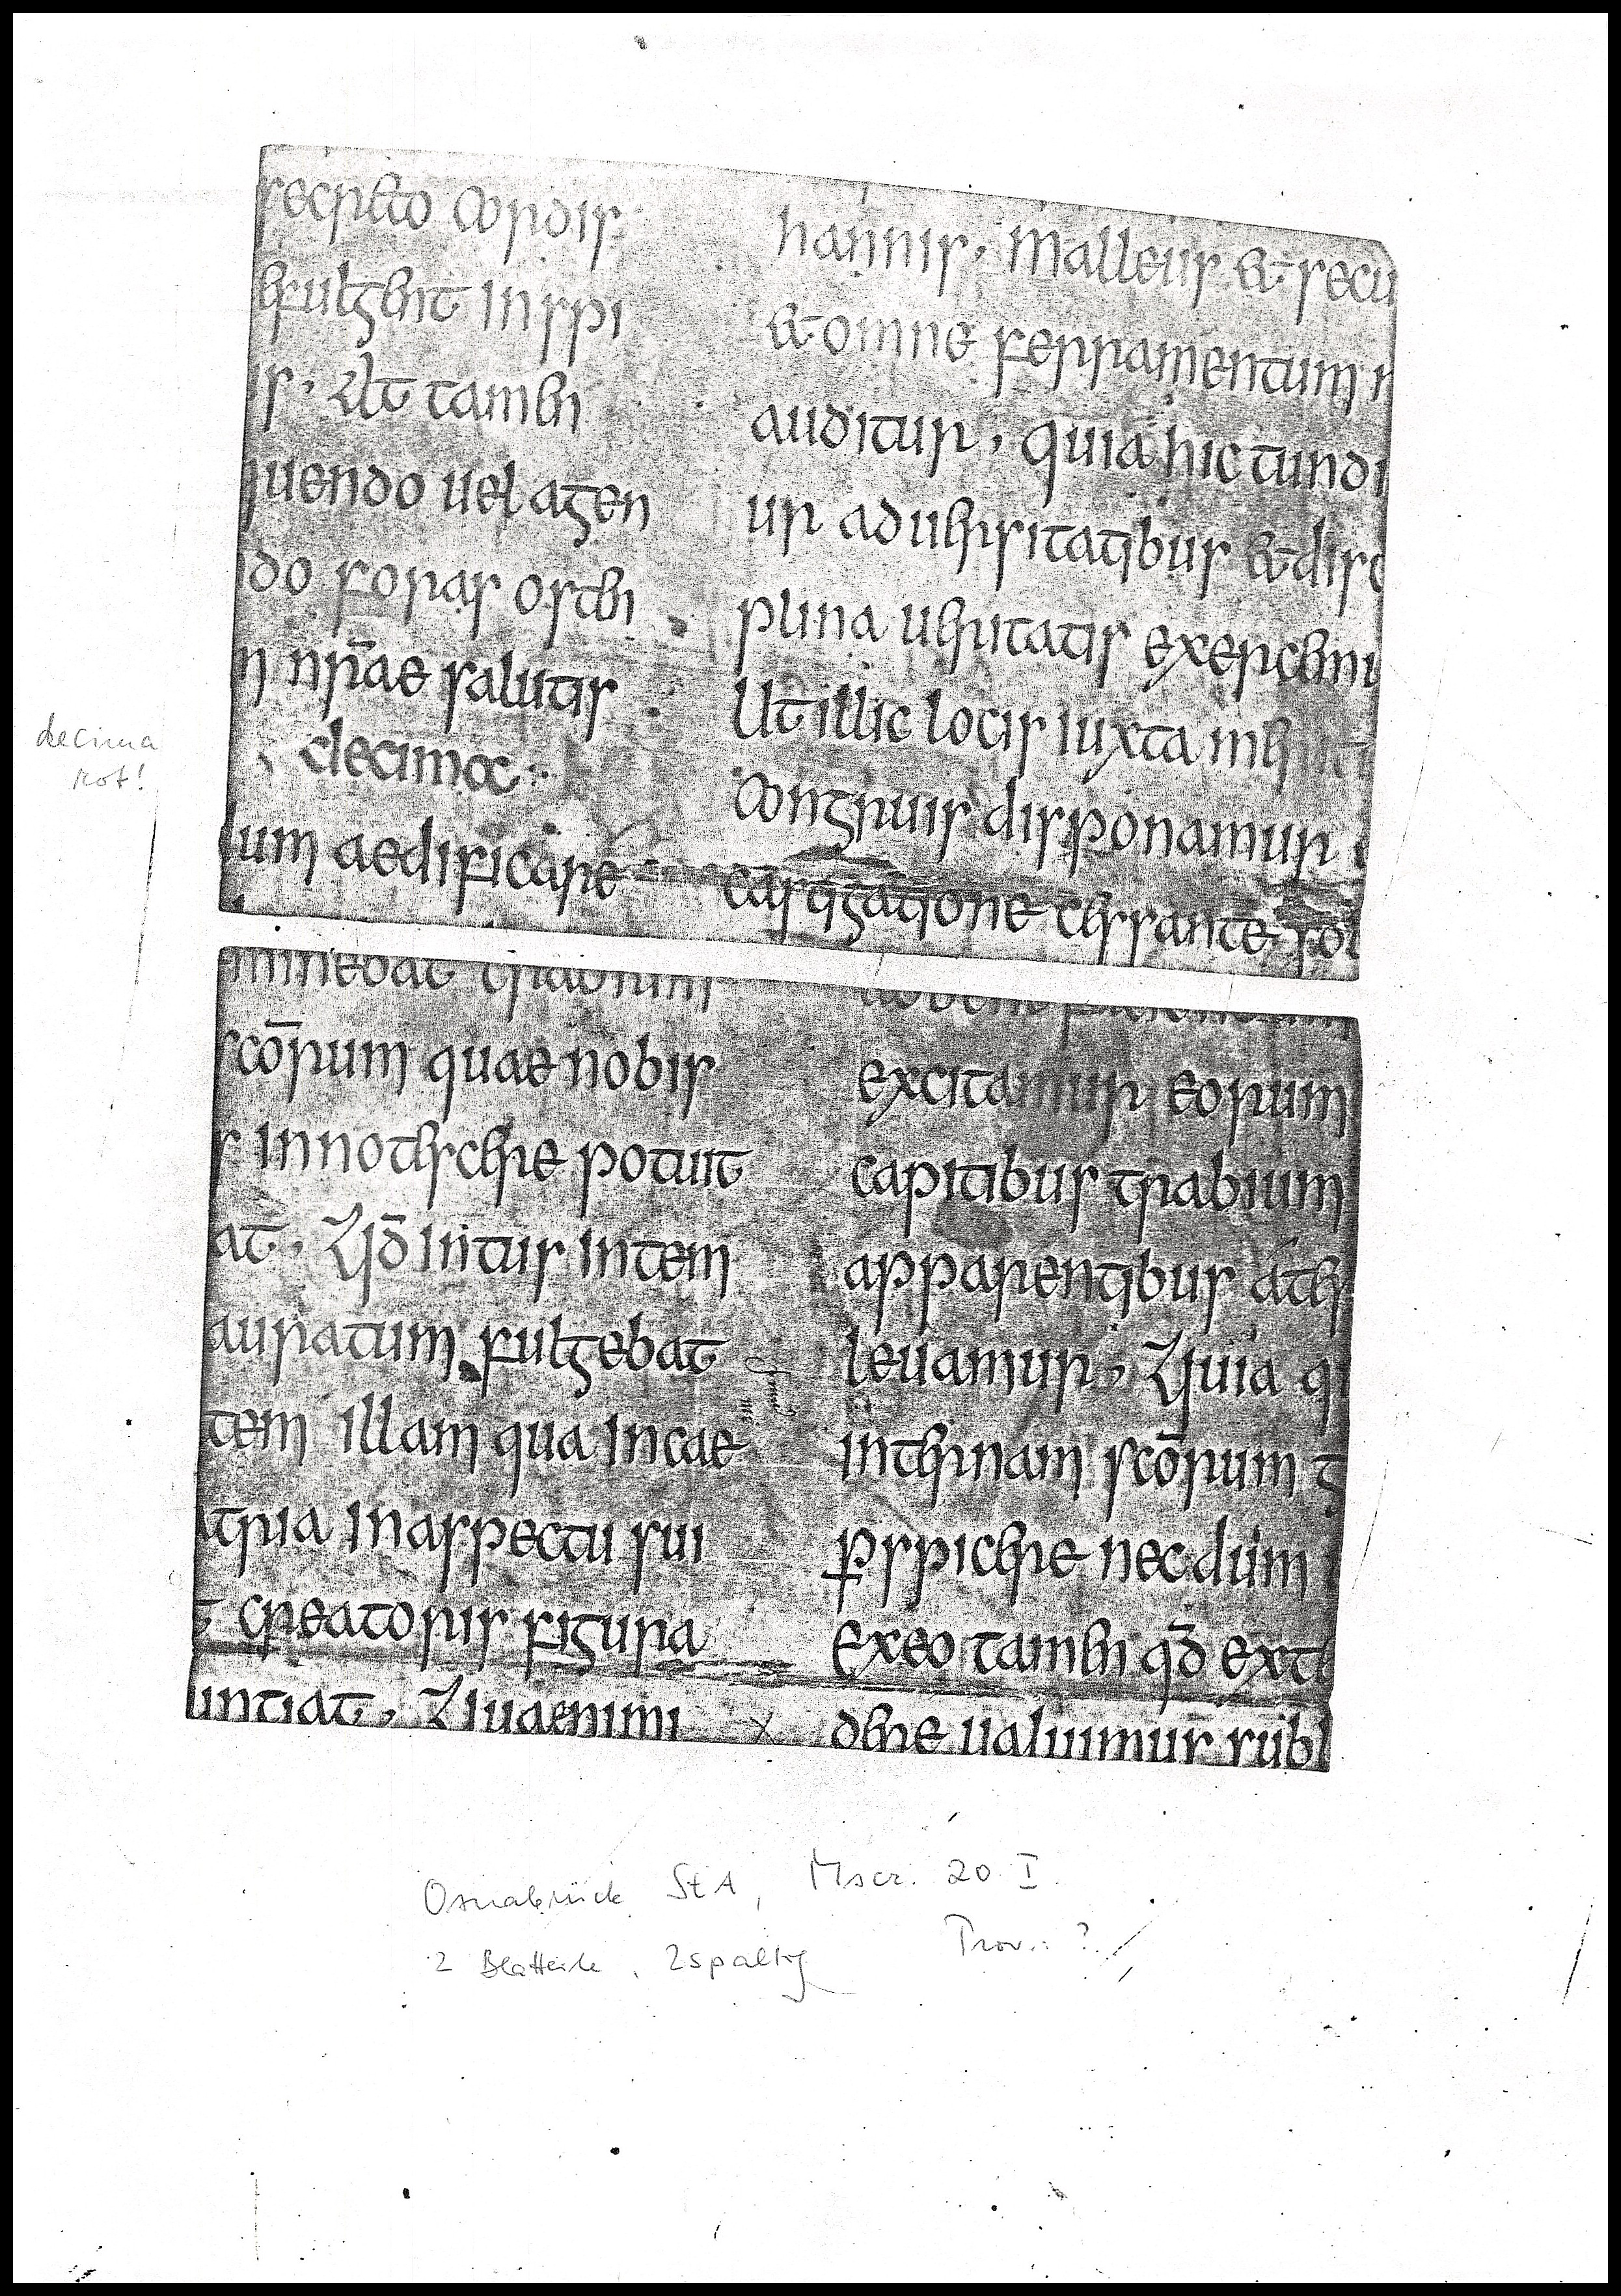 secreto cordis
efulgent in spi
is, Ut tamen
quendo uel agen
do foras osten
n nr̄ae salutis
decima
um aedificare
hannis, Malleus et secu
et omne ferramentum n
auditur, quia hic tundi
ur aduersitatibus et disc
plina ueritatis exercemi
Ut illic locis iuxta me
congruis disponamur
castigatione cessante sol
decima
rot!
minebat trabium
scōrum quae nobis
s innotescere potuit
at, Qd̄ intus in tem
auratum fulgebat
tem illam qua in cae
atria in aspectu sui
t creatoris figura
untiat, Qua enim
excitamur eorum
capitibus trabium
apparentibus ad te
leuamur, Quia qi
internam scōrum g
pspicere nec dum
Ex eo tamen qd̄ ext
dere ualuimus subl
Osnabrück StA, Mscr. 20 I
Prov.: ?
2 Blatteile, 2spaltig